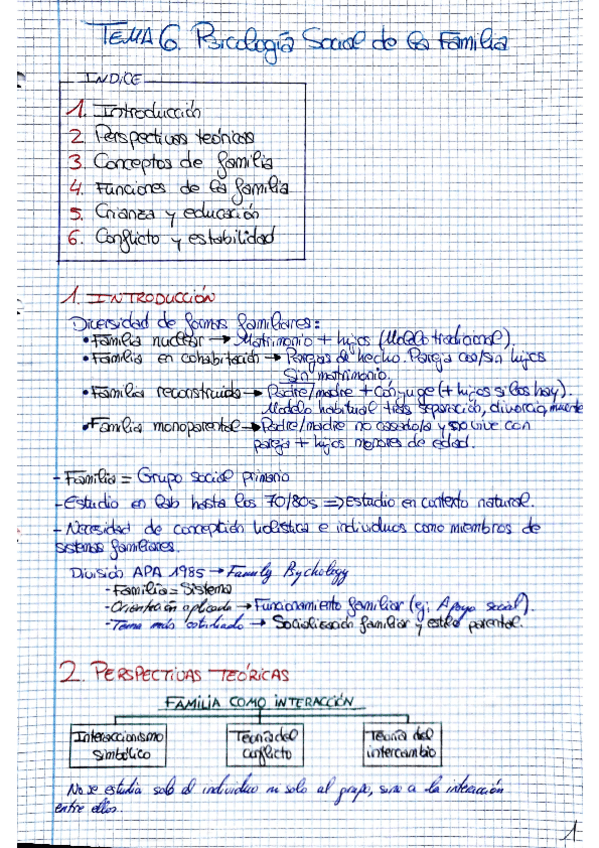 TEMA 6. Psicología Social de la Familia
INDICE
1. Introducción
2. Perspectivas teóricas
3. Conceptos de familia
4. Funciones de la familia
5. Crianza y educación
6. Conflicto y estabilidad
1. INTRODUCCIÓN
Diversidad de formas familiares:
• Familia nuclear → Matrimonio + hijos (Modelo tradicional).
• Familia en cohabitación → Parejas de hecho. Pareja con/sin hijos
Sin matrimonio.
• Familia reconstruida → Padre/madre + Cónyuge (+ hijos si los hay).
Modelo habitual tras separación, divorcio, muerte
• Familia monoparental → Padre/madre no casado/a y no vive con
pareja + hijos menores de edad.
- Familia = Grupo social primario
- Estudio en lab hasta los 70/80s ⇒ Estudio en contexto natural.
- Necesidad de concepción holística e individuos como miembros de
sistemas familiares.
División APA 1985 → Family Psychology
- Familia = Sistema
- Orientación aplicada → Funcionamiento familiar (ej: Apoyo social).
- Tema más estudiado → Socialización familiar y estilo parental.
2. PERSPECTIVAS TEÓRICAS
FAMILIA COMO INTERACCIÓN
Interaccionismo simbólico
Teoría del conflicto
Teoría del intercambio
No se estudia solo al individuo ni solo al grupo, sino a la interacción
entre ellos.
1